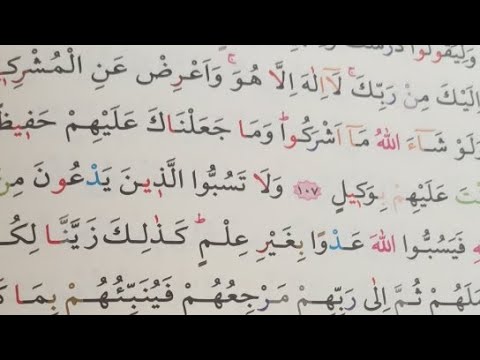 وَلِيَقُولُوا دَرَسْتَ
اِلَيْكَ مِنْ رَبِّكَۚ لَٓا اِلٰهَ اِلَّا هُوَۚ وَاَعْرِضْ عَنِ الْمُشْرِكٖ
وَلَوْ شَٓاءَ اللّٰهُ مَٓا اَشْرَكُواؕ وَمَا جَعَلْنَاكَ عَلَيْهِمْ حَفٖيظً
نْتَ عَلَيْهِمْ بِوَكٖيلٍ ١٠٧ وَلَا تَسُبُّوا الَّذٖينَ يَدْعُونَ مِنْ
فَيَسُبُّوا اللّٰهَ عَدْوًا بِغَيْرِ عِلْمٍؕ كَذٰلِكَ زَيَّنَّا لِكُ
مَلَهُمْ ثُمَّ اِلٰى رَبِّهِمْ مَرْجِعُهُمْ فَيُنَبِّئُهُمْ بِمَا كَ